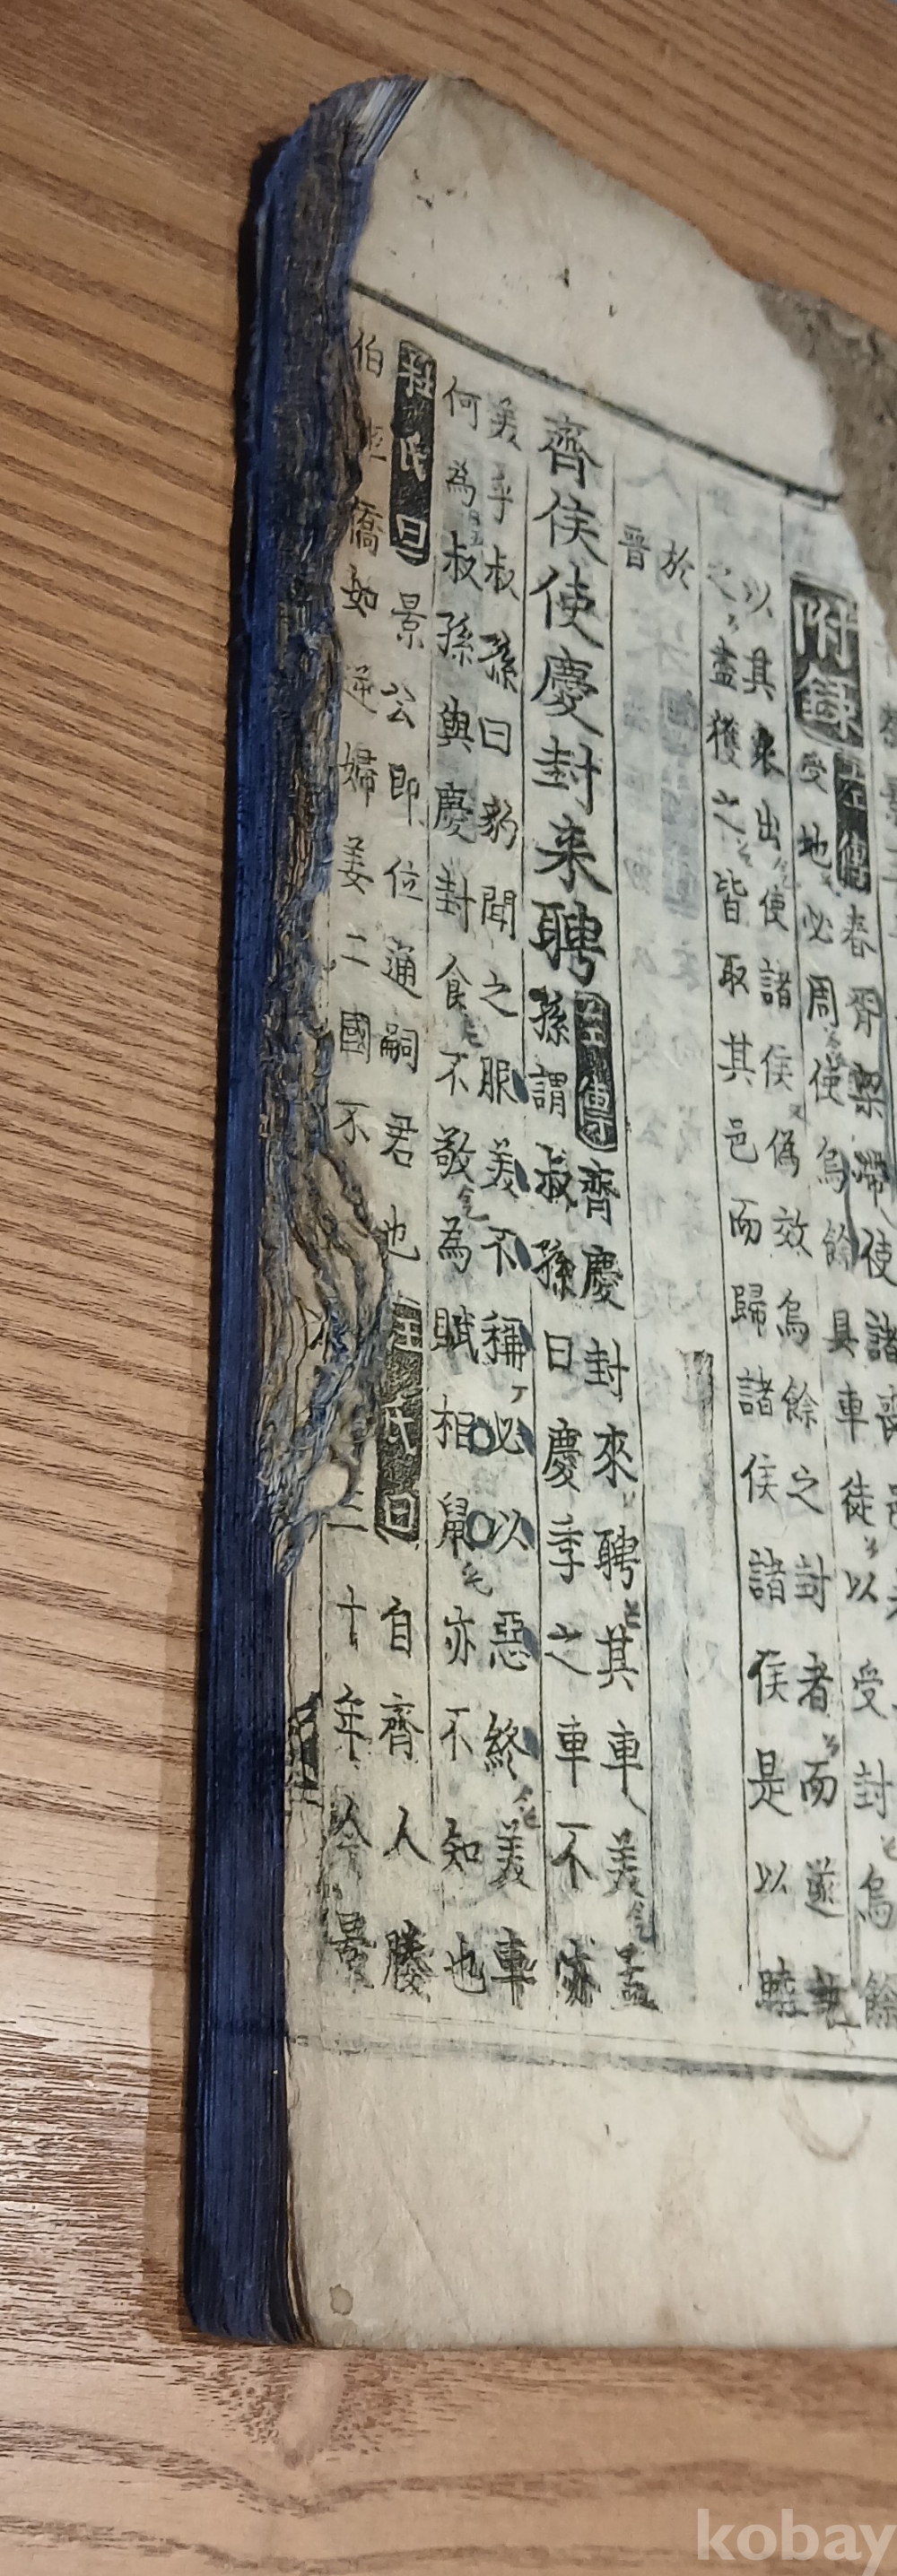 附錄
左傳春胥梁帶使諸喪邑者
受地必周使烏餘具車徒以受封烏餘
以其衆出使諸侯偽效烏餘之封者而遂
之盡獲之皆取其邑而歸諸侯諸侯是以睦
於
晋
齊侯使慶封来聘
左傳齊慶封來聘其車美孟
孫謂叔孫曰慶季之車不亦
美乎叔孫曰豹聞之服美不稱必以惡終美車
何為叔孫與慶封食不敬為賦相鼠亦不知也
杜氏曰景公即位通嗣君也
汪氏曰自齊人媵
伯姬僑如逆婦姜二國不
三十年今景
kobay